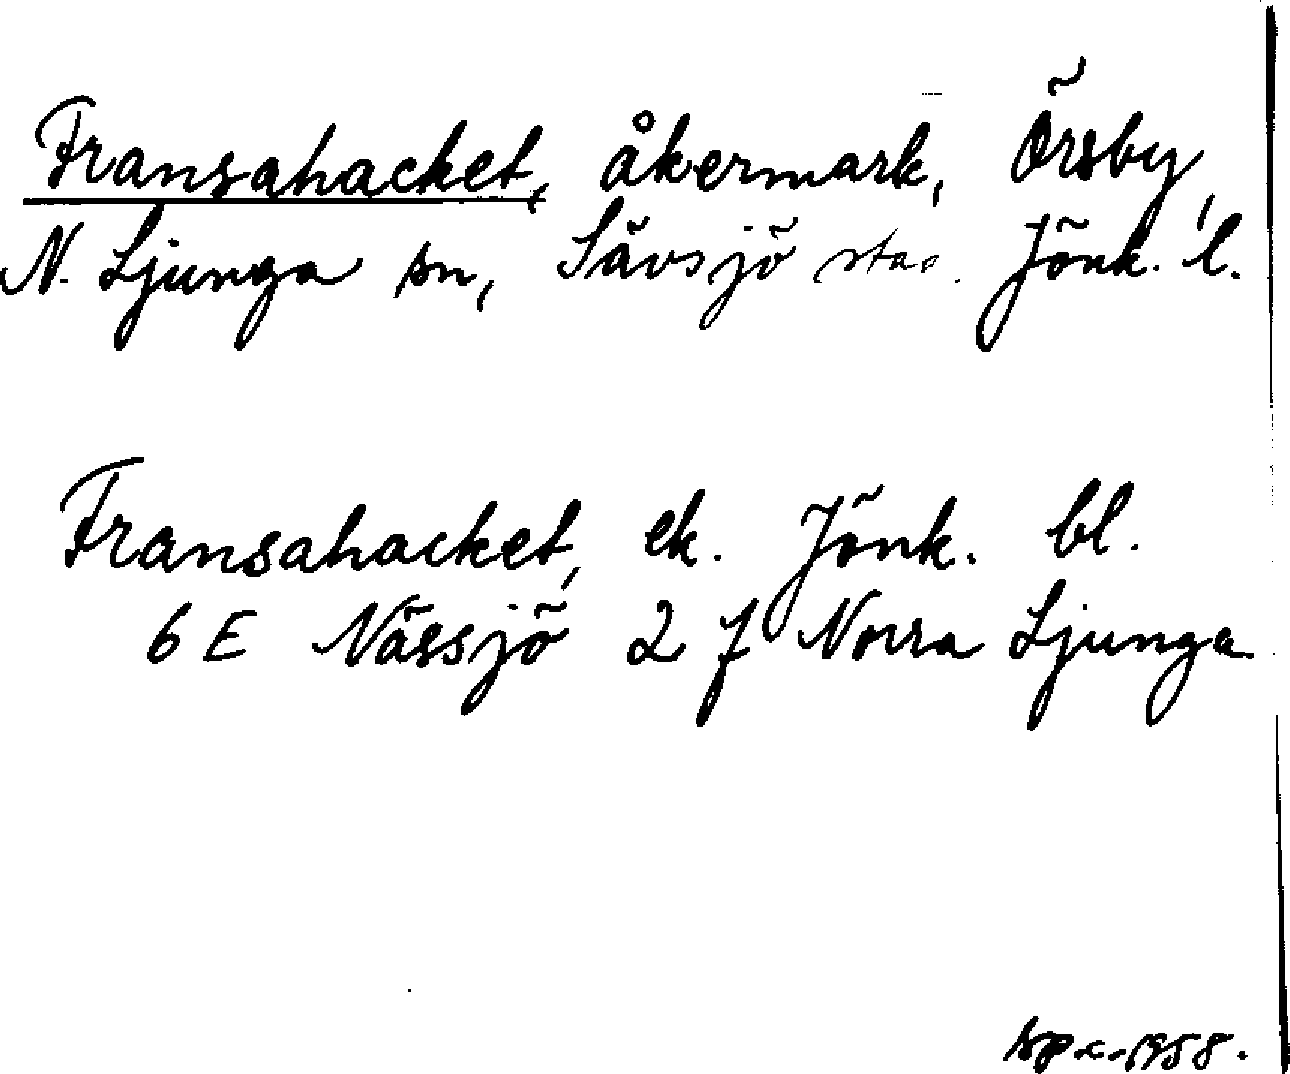 Fransahacket, åkermark, Örsby,
N. Ljunga sn, Sävsjö stad. Jönk. l.
Fransahacket, ek. Jönk. bl.
6 E Nässjö 2 f Norra Ljunga
1958.